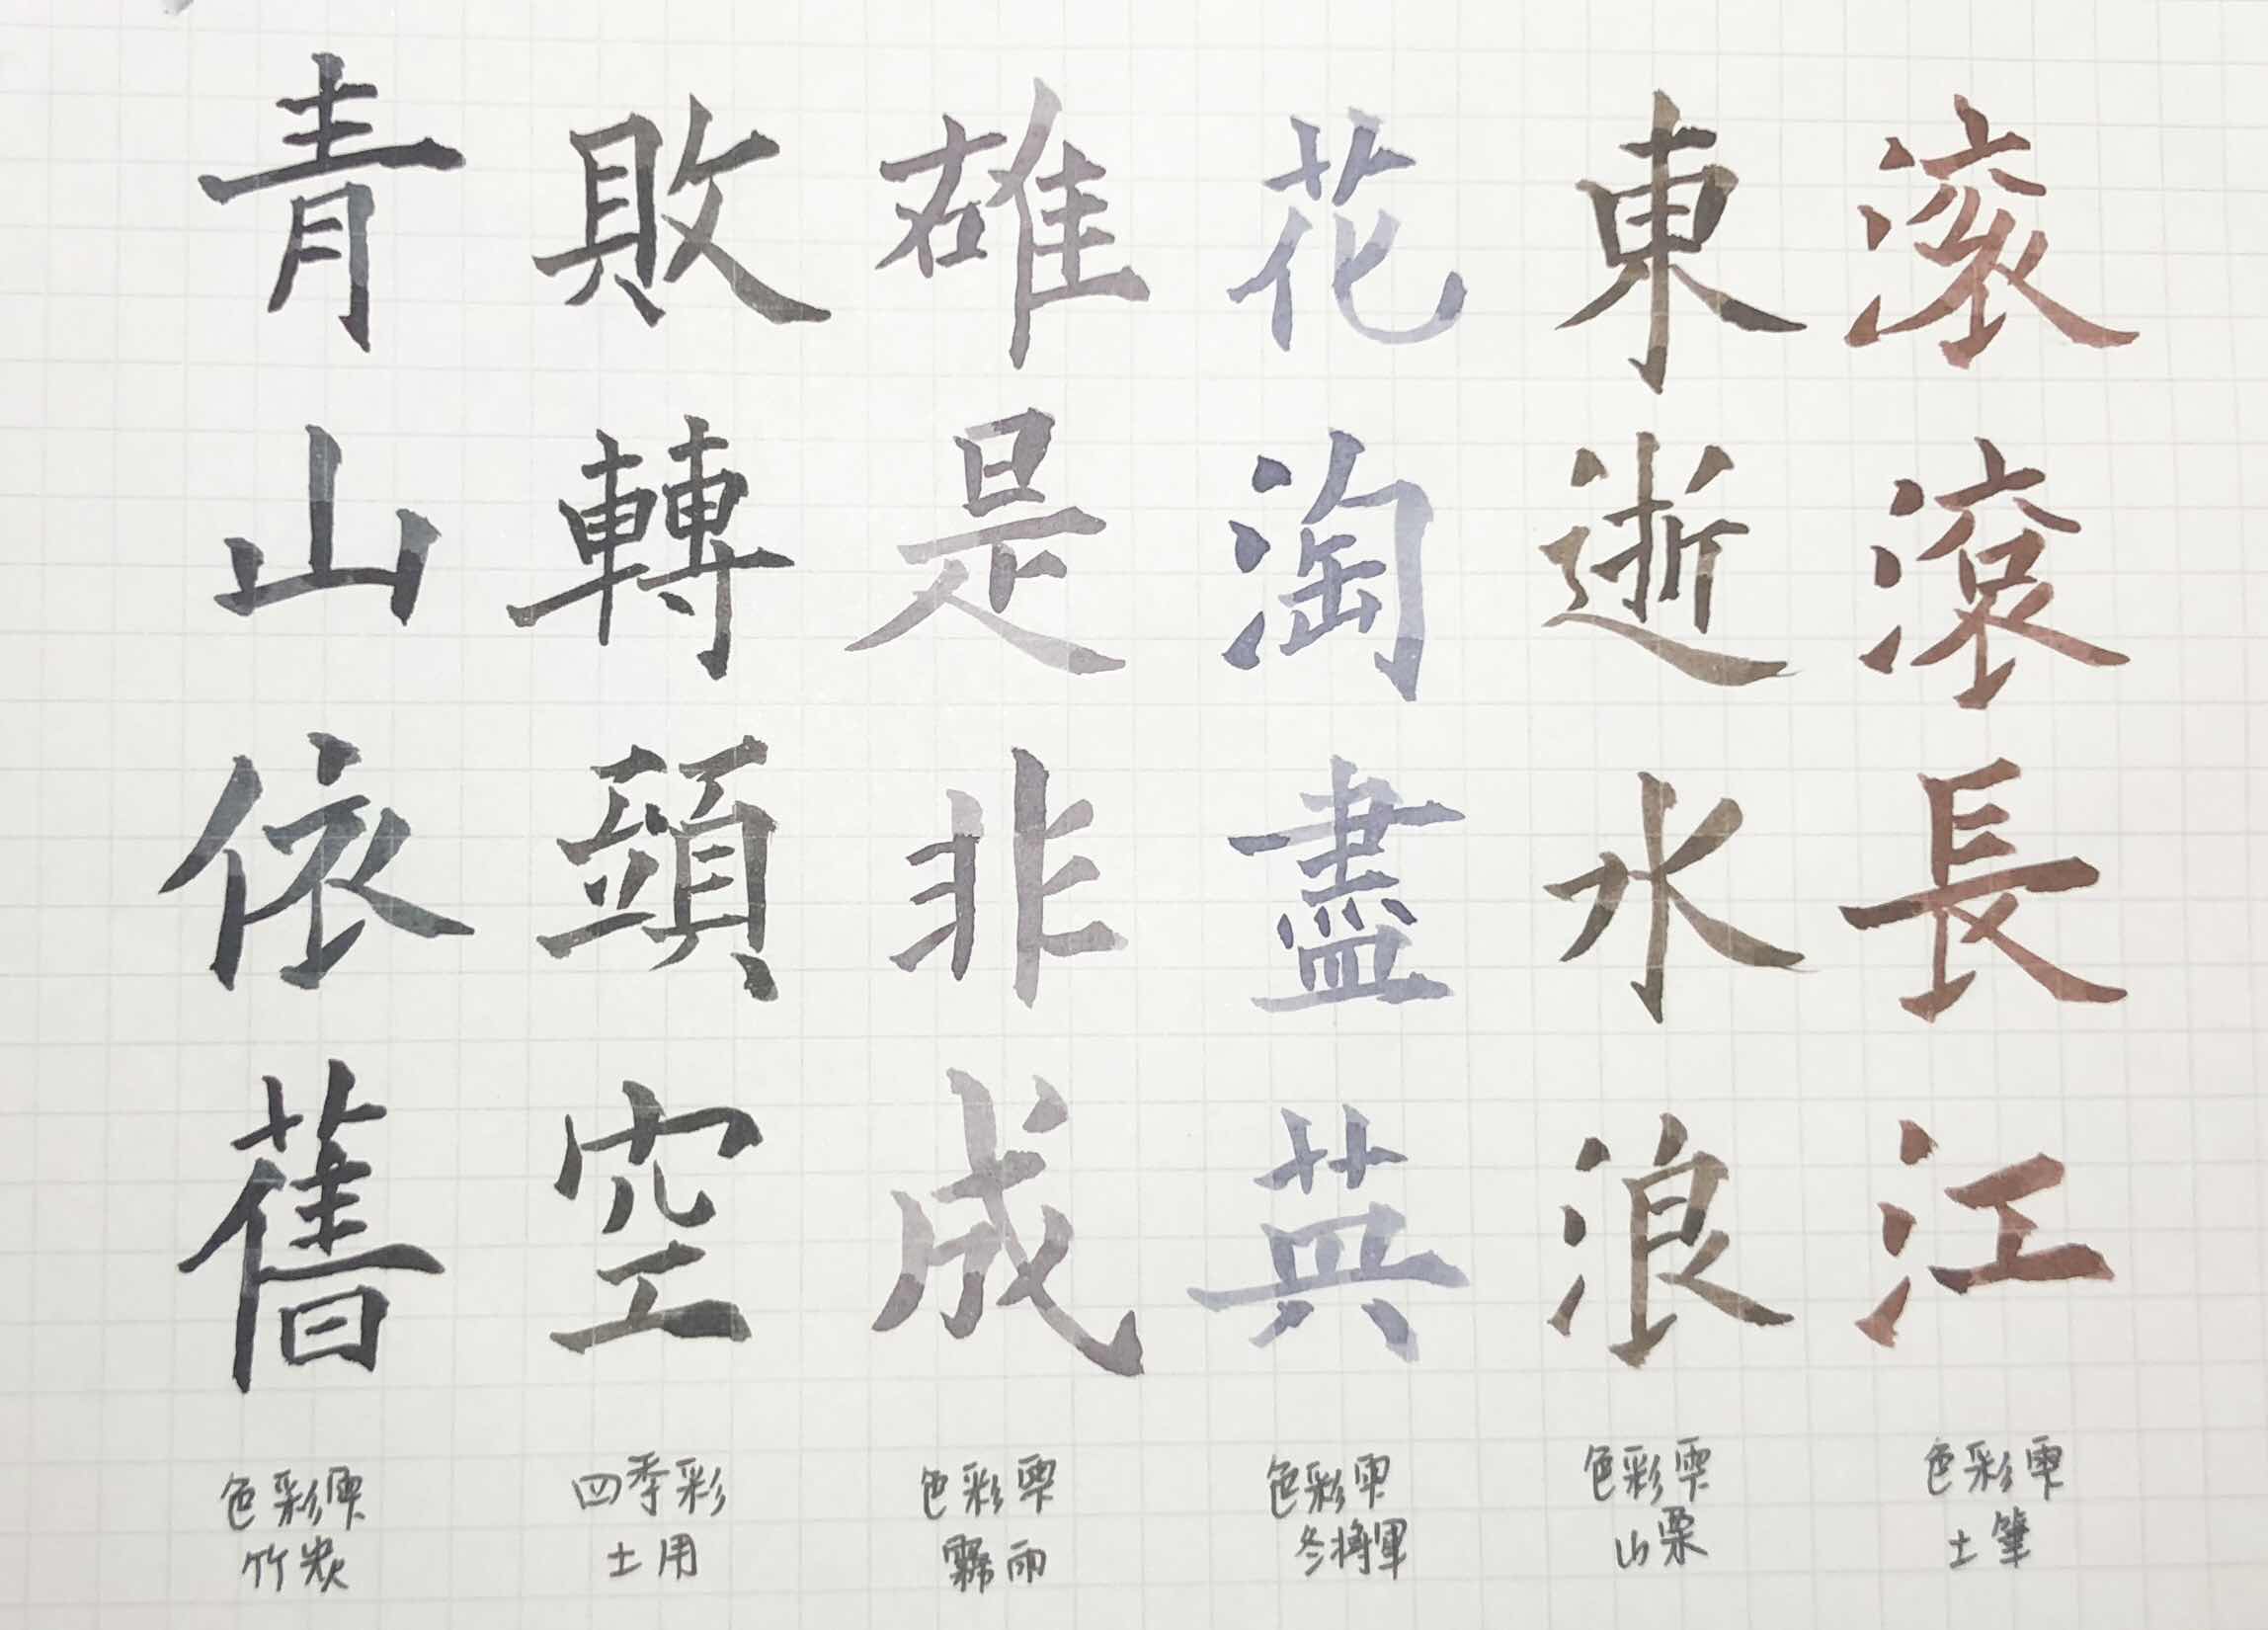 滾滾長江
東逝水浪
花淘盡英
雄是非成
敗轉頭空
青山依舊
色彩雫
土筆
色彩雫
山栗
色彩雫
冬将軍
色彩雫
霧雨
四季彩
土用
色彩雫
竹炭